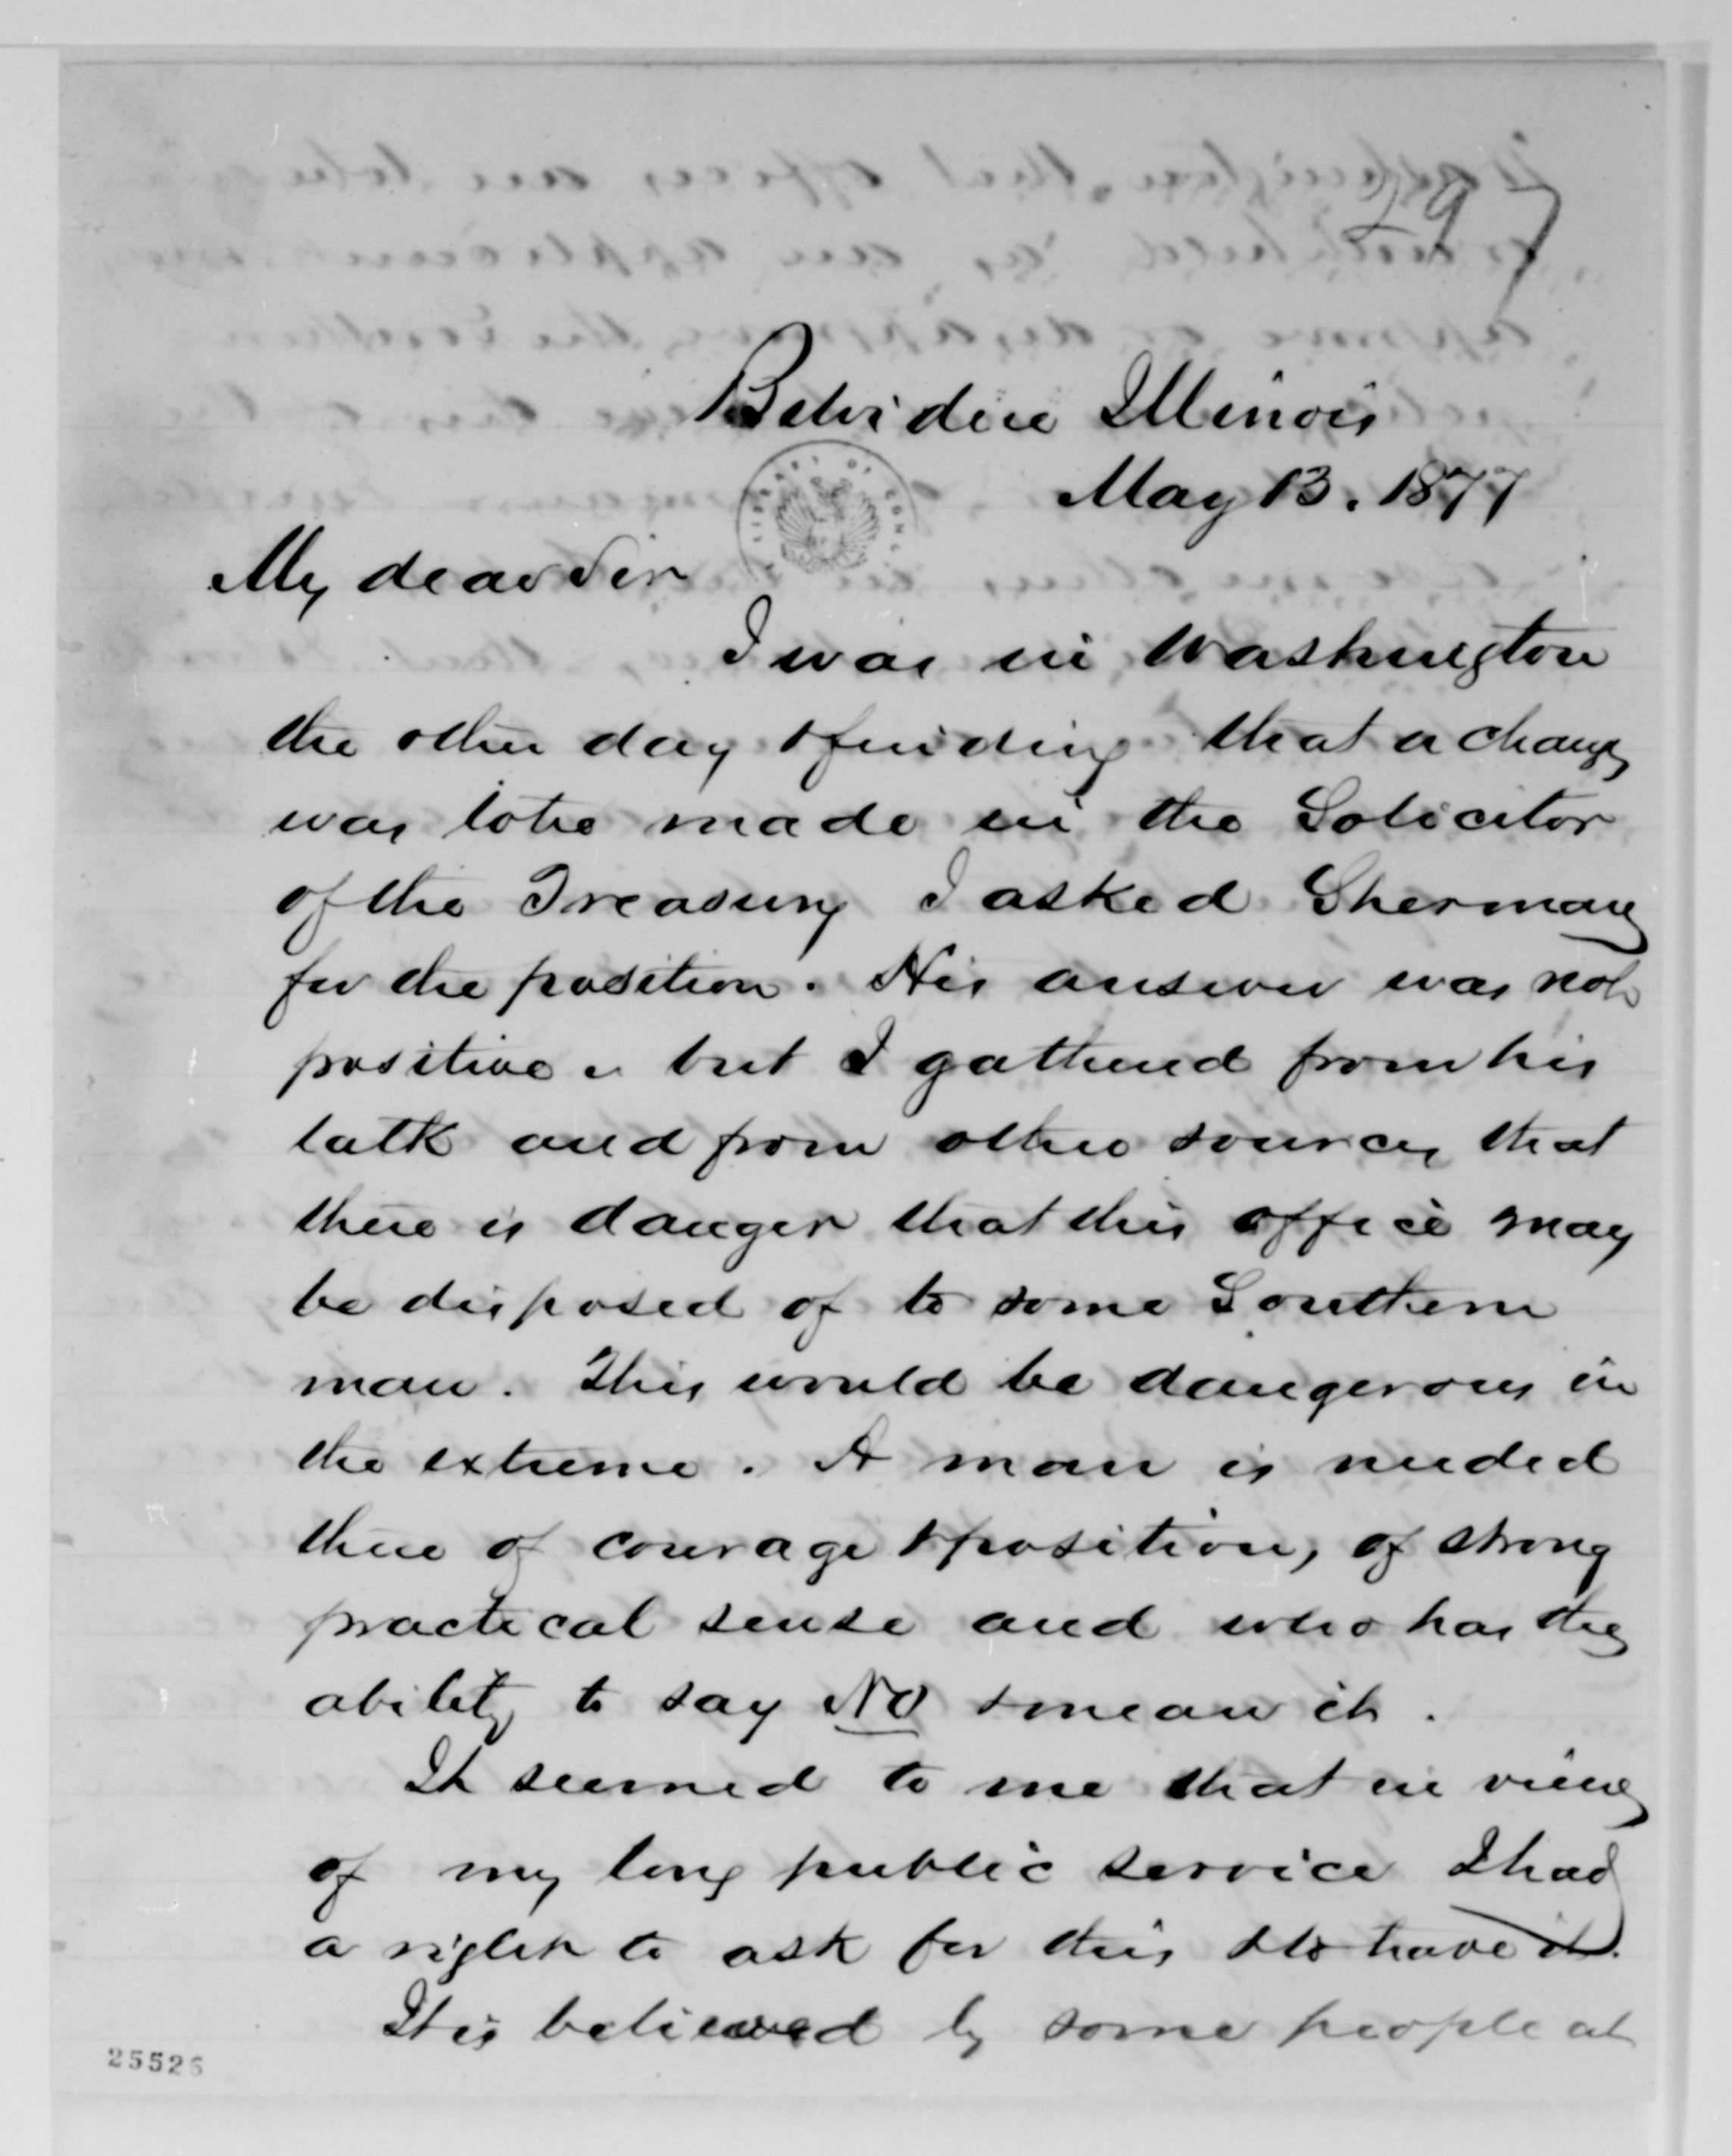 297
Belvidere Illinois
May 13. 1877
LIBRARY OF CONG
My dear Sir
I was in Washington
the other day & finding that a change
was to be made in the Solicitor
of the Treasury I asked Sherman
for the position. His answer was not
positive - but I gathered from his
talk and from other sources that
there is danger that this office may
be disposed of to some Southern
man. This would be dangerous in
the extreme. A man is needed
there of courage & position, of strong
practical sense and who has the
ability to say NO & mean it.
It seemed to me that in view
of my long public service I had
a right to ask for this & to have it.
It is believed by some people at
25526